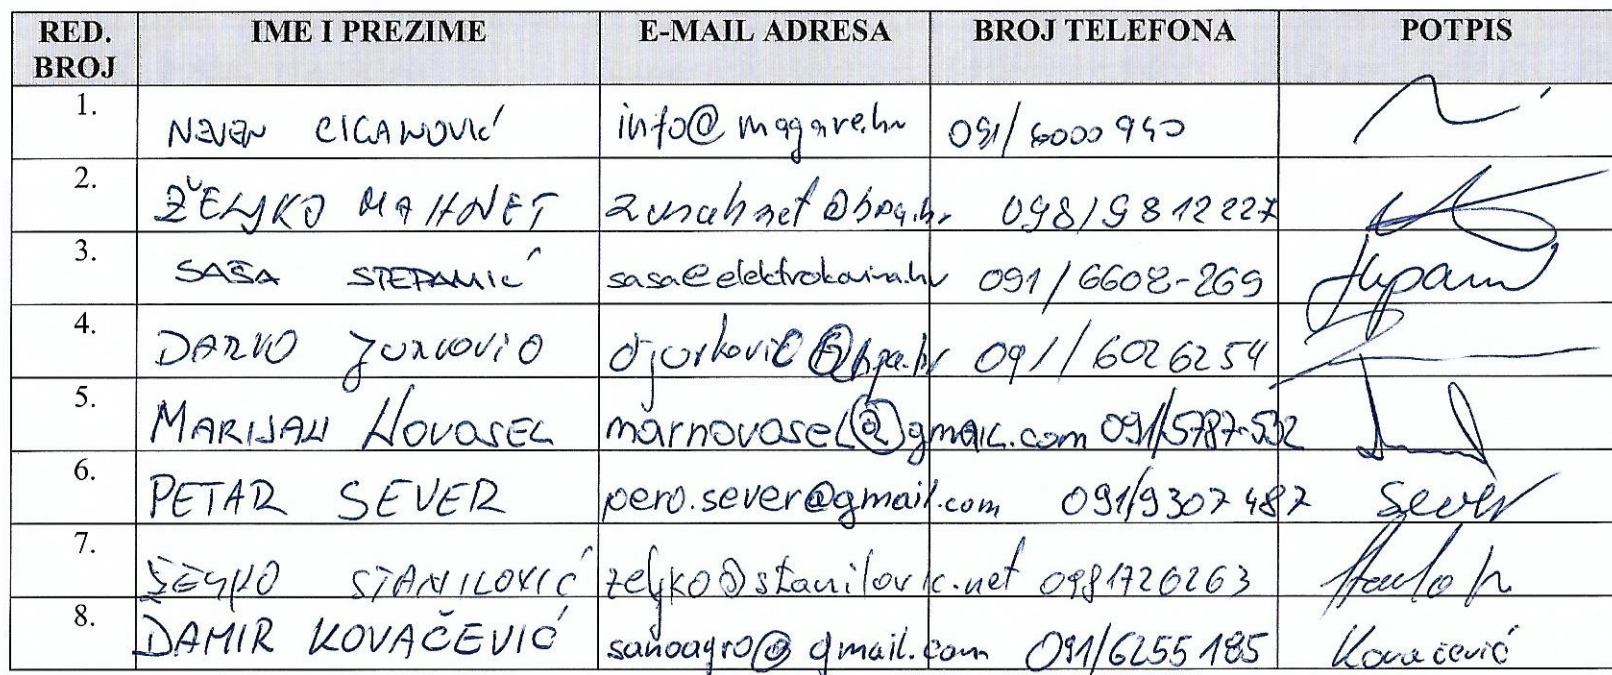 RED. BROJ IME I PREZIME E-MAIL ADRESA BROJ TELEFONA POTPIS
1. NEVEN CIGANOVIĆ info@magare.hr 091/6000 940
2. ŽELJKO MAHNET zmahnet@hpa.hr 098/9812227
3. SAŠA STEPANIĆ 091/6608-269
4. DARKO JURKOVIĆ djurkovic@hpa.hr 091/6026254
5. MARIJAN NOVOSEL marnovosel@gmail.com 091/5787-532
6. PETAR SEVER pero.sever@gmail.com 091/9307487 Sever
7. ŽELJKO STANILOVIĆ zeljko@stanilovic.net 0981726263
8. DAMIR KOVAČEVIĆ sanoagro@gmail.com 091/6255185 Kovačević